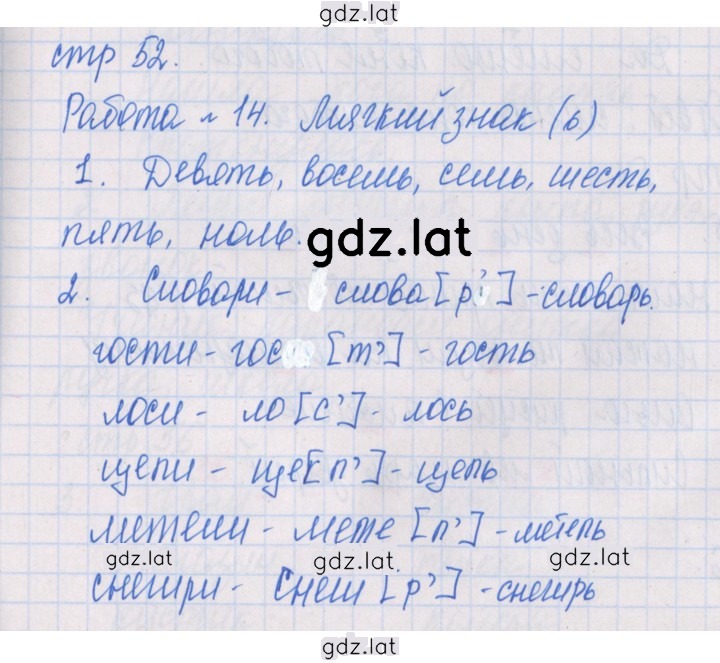 gdz.lat
стр 52.
Работа № 14. Мягкий знак (ь)
1. Девять, восемь, семь, шесть,
пять, ноль.
gdz.lat
2. Словари - слова [р'] - словарь.
гости - гос [т'] - гость
лоси - ло [с'] - лось
цепи - це [п'] - цепь
метели - мете [л'] - метель
gdz.lat gdz.lat gdz.lat
снегири - снеги [р'] - снегирь
gdz.lat